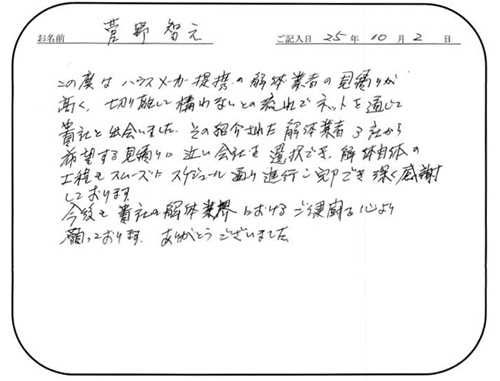 お名前 菅野智元 ご記入日 25年10月2日
この度はハウスメーカー提携の解体業者の見積りが
高く、切り離して構わないとの流れでネットを通じて
貴社と出会いました。その紹介された解体業者3社から
希望する見積りに近い会社を選択でき、解体自体の
工程もスムーズにスケジュール通り進行し完了でき深く感謝
しております。
今後も貴社の解体業界におけるご健闘を心より
願っております。ありがとうございました。